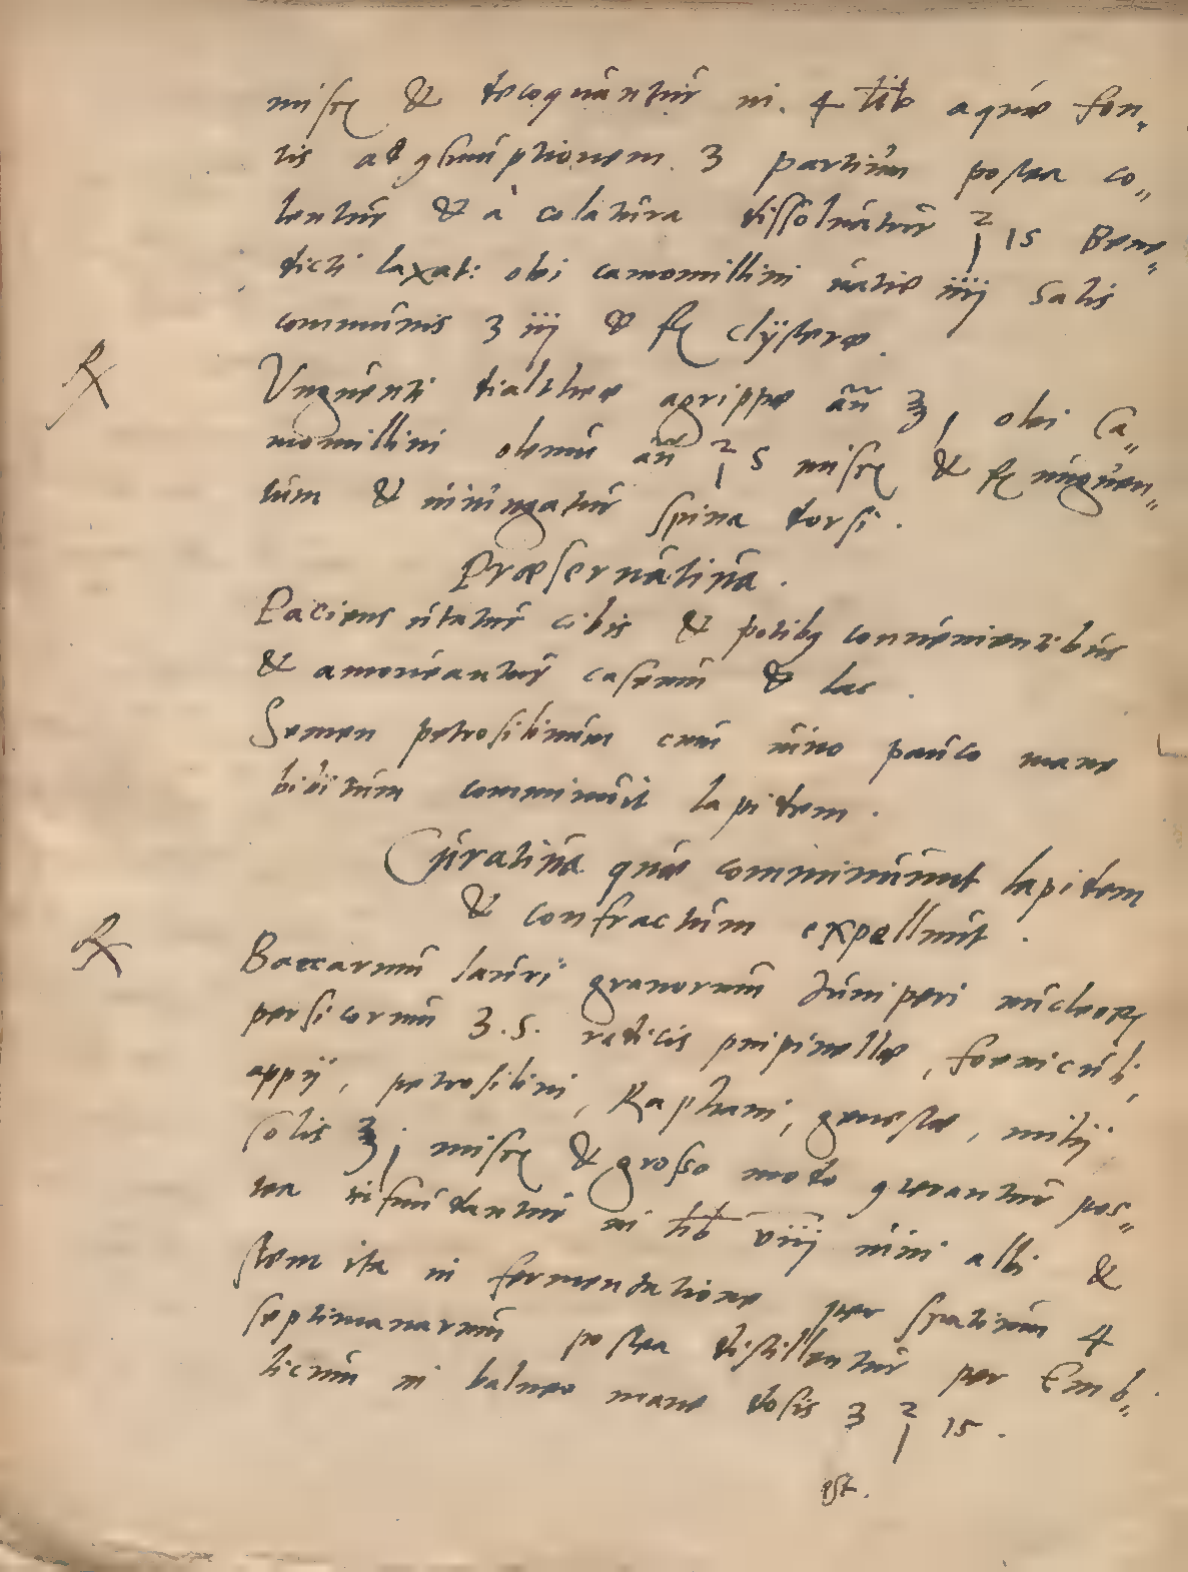 misc₎ & decoquantur in. 4 lib aquæ fon„
tis ad ꝯsumptionem. 3 partium postea co„
lentur & a colatura dissoluatur ℥ 1 s Bene„
dicti laxat: olei camomillini rutæ iiij salis
communis ʒ iij & f₎ clÿsteræ.
℞ Vnguenti dialtheæ agrippæ añ ʒ j, olei Ca„
momillini oleum añ ℥ s misc₎ & f₎ unguen„
tum & iniungatur spina dorsi.
Præseruatiua.
Paciens utatur cibis & potibꝯ conuenientibus
& amoueantur caseum & lac.
Semen petrosilinum cum uino pauco mane
bibitum comminuit lapidem.
Curatiua quæ comminuunt lapidem
& confractum expellunt.
℞ Baccarum lauri granorum Juniperi nucleoꝝ
persicorum ʒ. s. radicis pinpinellæ, foeniculi,
appÿ, petrosilini, Raphani, genestæ, milÿ
solis ʒ j misc₎ & grosso modo ꝯterantur pos„
tea infundantur in lib viij uini albi &
stem ita in fermentatione per spatium 4
septimanarum postea distillentur per Emb„
licum in balneo mane dosis 3 ℥ 1 s.
est.